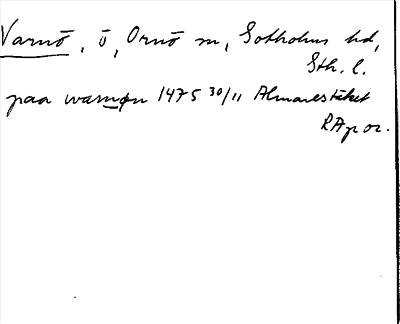 Varnö, ö, Ornö sn, Sotholms hd,
Sth. l.
paa warnøn 1475 30/11 Almarestäket
RAp or.